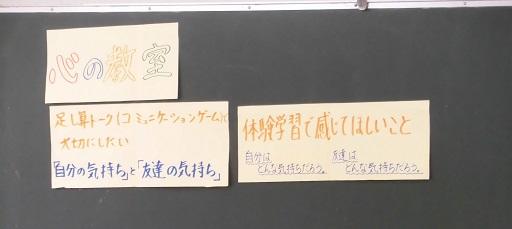 心の教室
足し算トーク(コミュニケーションゲーム)で
大切にしたい
「自分の気持ち」と「友達の気持ち」
体験学習で感じてほしいこと
自分は
どんな気持ちだろう。
友達は
どんな気持ちだろう。